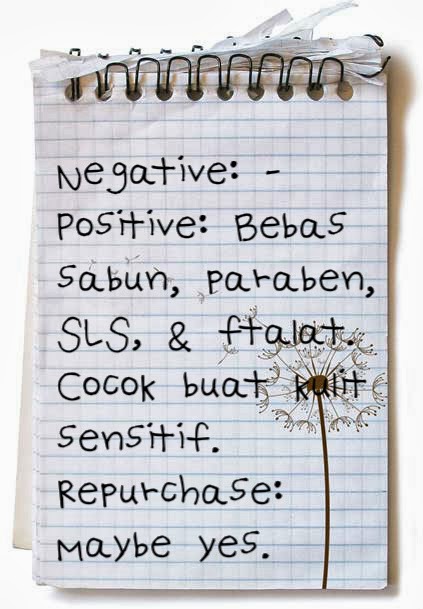 Negative: -
Positive: Bebas
sabun, paraben,
SLS, & ftalat.
Cocok buat kulit
sensitif.
Repurchase:
Maybe yes.